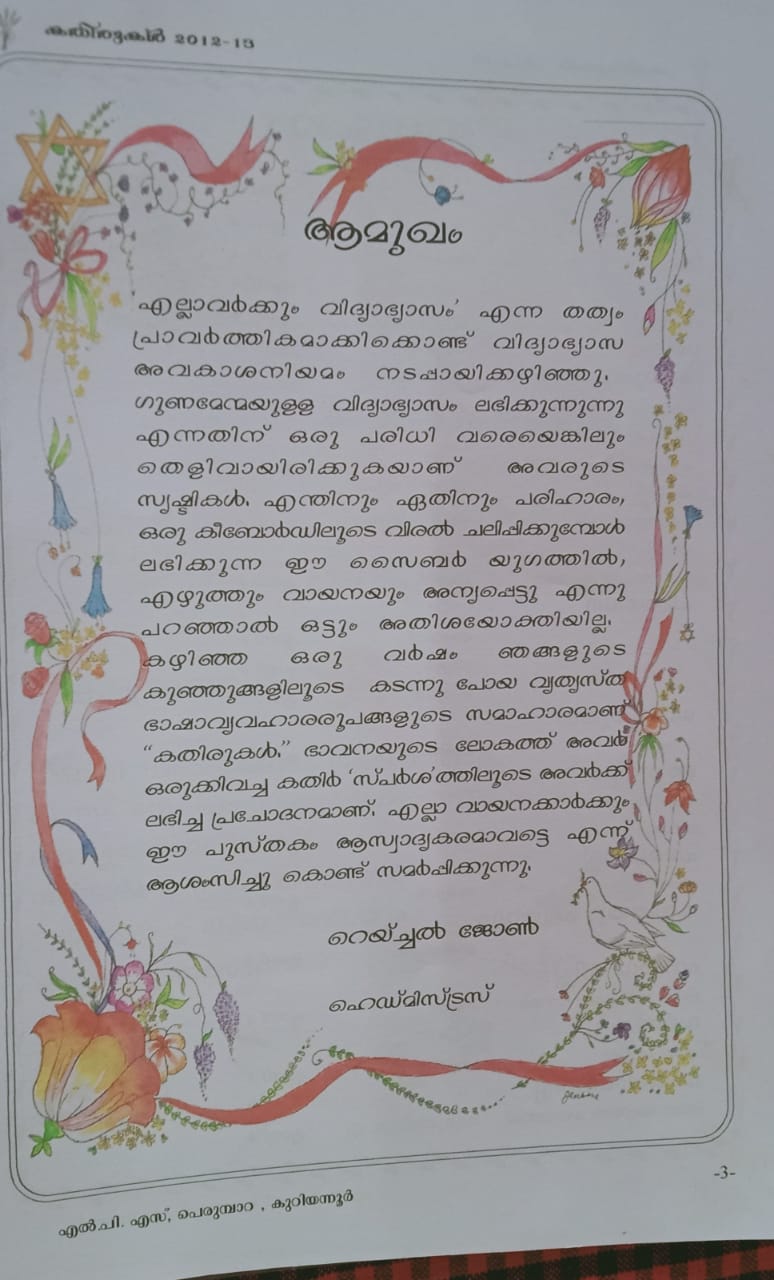 കതിരുകൾ 2012-13
ആമുഖം
'എല്ലാവർക്കും വിദ്യാഭ്യാസം' എന്ന തത്വം
പ്രാവർത്തികമാക്കിക്കൊണ്ട് വിദ്യാഭ്യാസ
അവകാശനിയമം നടപ്പായിക്കഴിഞ്ഞു.
ഗുണമേന്മയുള്ള വിദ്യാഭ്യാസം ലഭിക്കുന്നുന്നു
എന്നതിന് ഒരു പരിധി വരെയെങ്കിലും
തെളിവായിരിക്കുകയാണ് അവരുടെ
സൃഷ്ടികൾ. എന്തിനും ഏതിനും പരിഹാരം,
ഒരു കീബോർഡിലൂടെ വിരൽ ചലിപ്പിക്കുമ്പോൾ
ലഭിക്കുന്ന ഈ സൈബർ യുഗത്തിൽ,
എഴുത്തും വായനയും അന്യപ്പെട്ടു എന്നു
പറഞ്ഞാൽ ഒട്ടും അതിശയോക്തിയില്ല.
കഴിഞ്ഞ ഒരു വർഷം ഞങ്ങളുടെ
കുഞ്ഞുങ്ങളിലൂടെ കടന്നു പോയ വ്യത്യസ്ത
ഭാഷാവ്യവഹാരരൂപങ്ങളുടെ സമാഹാരമാണ്
“കതിരുകൾ.” ഭാവനയുടെ ലോകത്ത് അവർ
ഒരുക്കിവച്ച കതിർ 'സ്പർശ'ത്തിലൂടെ അവർക്ക്
ലഭിച്ച പ്രചോദനമാണ്. എല്ലാ വായനക്കാർക്കും
ഈ പുസ്തകം ആസ്വാദ്യകരമാവട്ടെ എന്ന്
ആശംസിച്ചു കൊണ്ട് സമർപ്പിക്കുന്നു.
റെയ്ച്ചൽ ജോൺ
ഹെഡ്മിസ്ട്രസ്
-3-
എൽ.പി. എസ്, പെരുമ്പാറ , കുറിയന്നൂർ